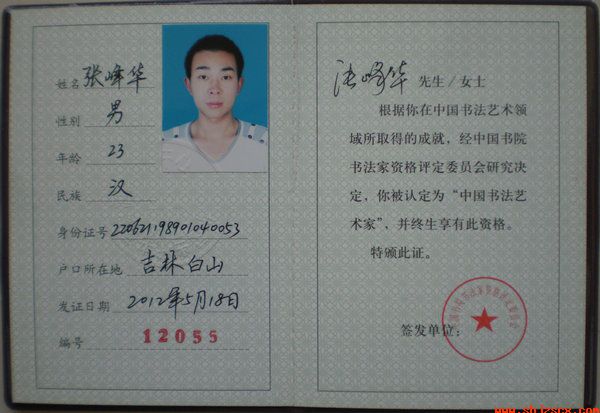 姓名 张峰华
性别 男
年龄 23
民族 汉
身份证号 220621198901040053
户口所在地 吉林白山
发证日期 2012年5月18日
编号 12055
张峰华 先生/女士
根据你在中国书法艺术领
域所取得的成就，经中国书院
书法家资格评定委员会研究决
定，你被认定为“中国书法艺
术家”，并终生享有此资格。
特颁此证。
签发单位：